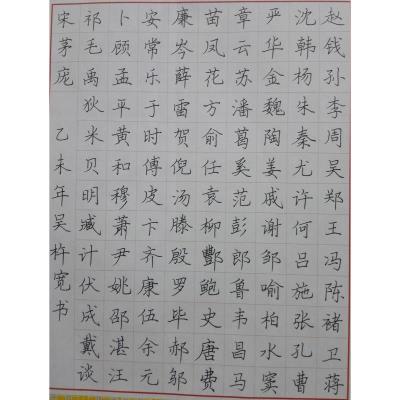 赵钱孙李周吴郑王冯陈褚卫蒋
沈韩杨朱秦尤许何吕施张孔曹
严华金魏陶姜戚谢邹喻柏水窦
章云苏潘葛奚范彭郎鲁韦昌马
苗凤花方俞任袁柳酆鲍史唐费
廉岑薛雷贺倪汤滕殷罗毕郝邬
安常乐于时傅皮卞齐康伍余元
卜顾孟平黄和穆萧尹姚邵湛汪
祁毛禹狄米贝明臧计伏成戴谈
宋茅庞
乙未年吴杵宽书